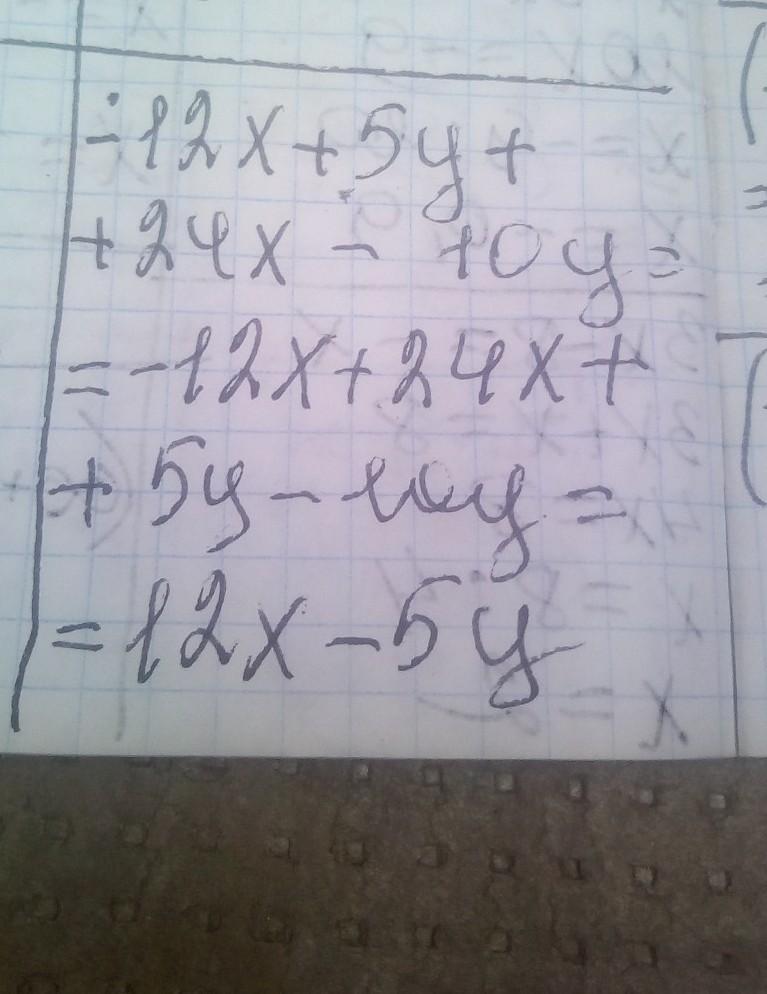 -12x+5y+
+24x - 10y=
=-12x+24x+
+ 5y - 10y =
=12x-5y